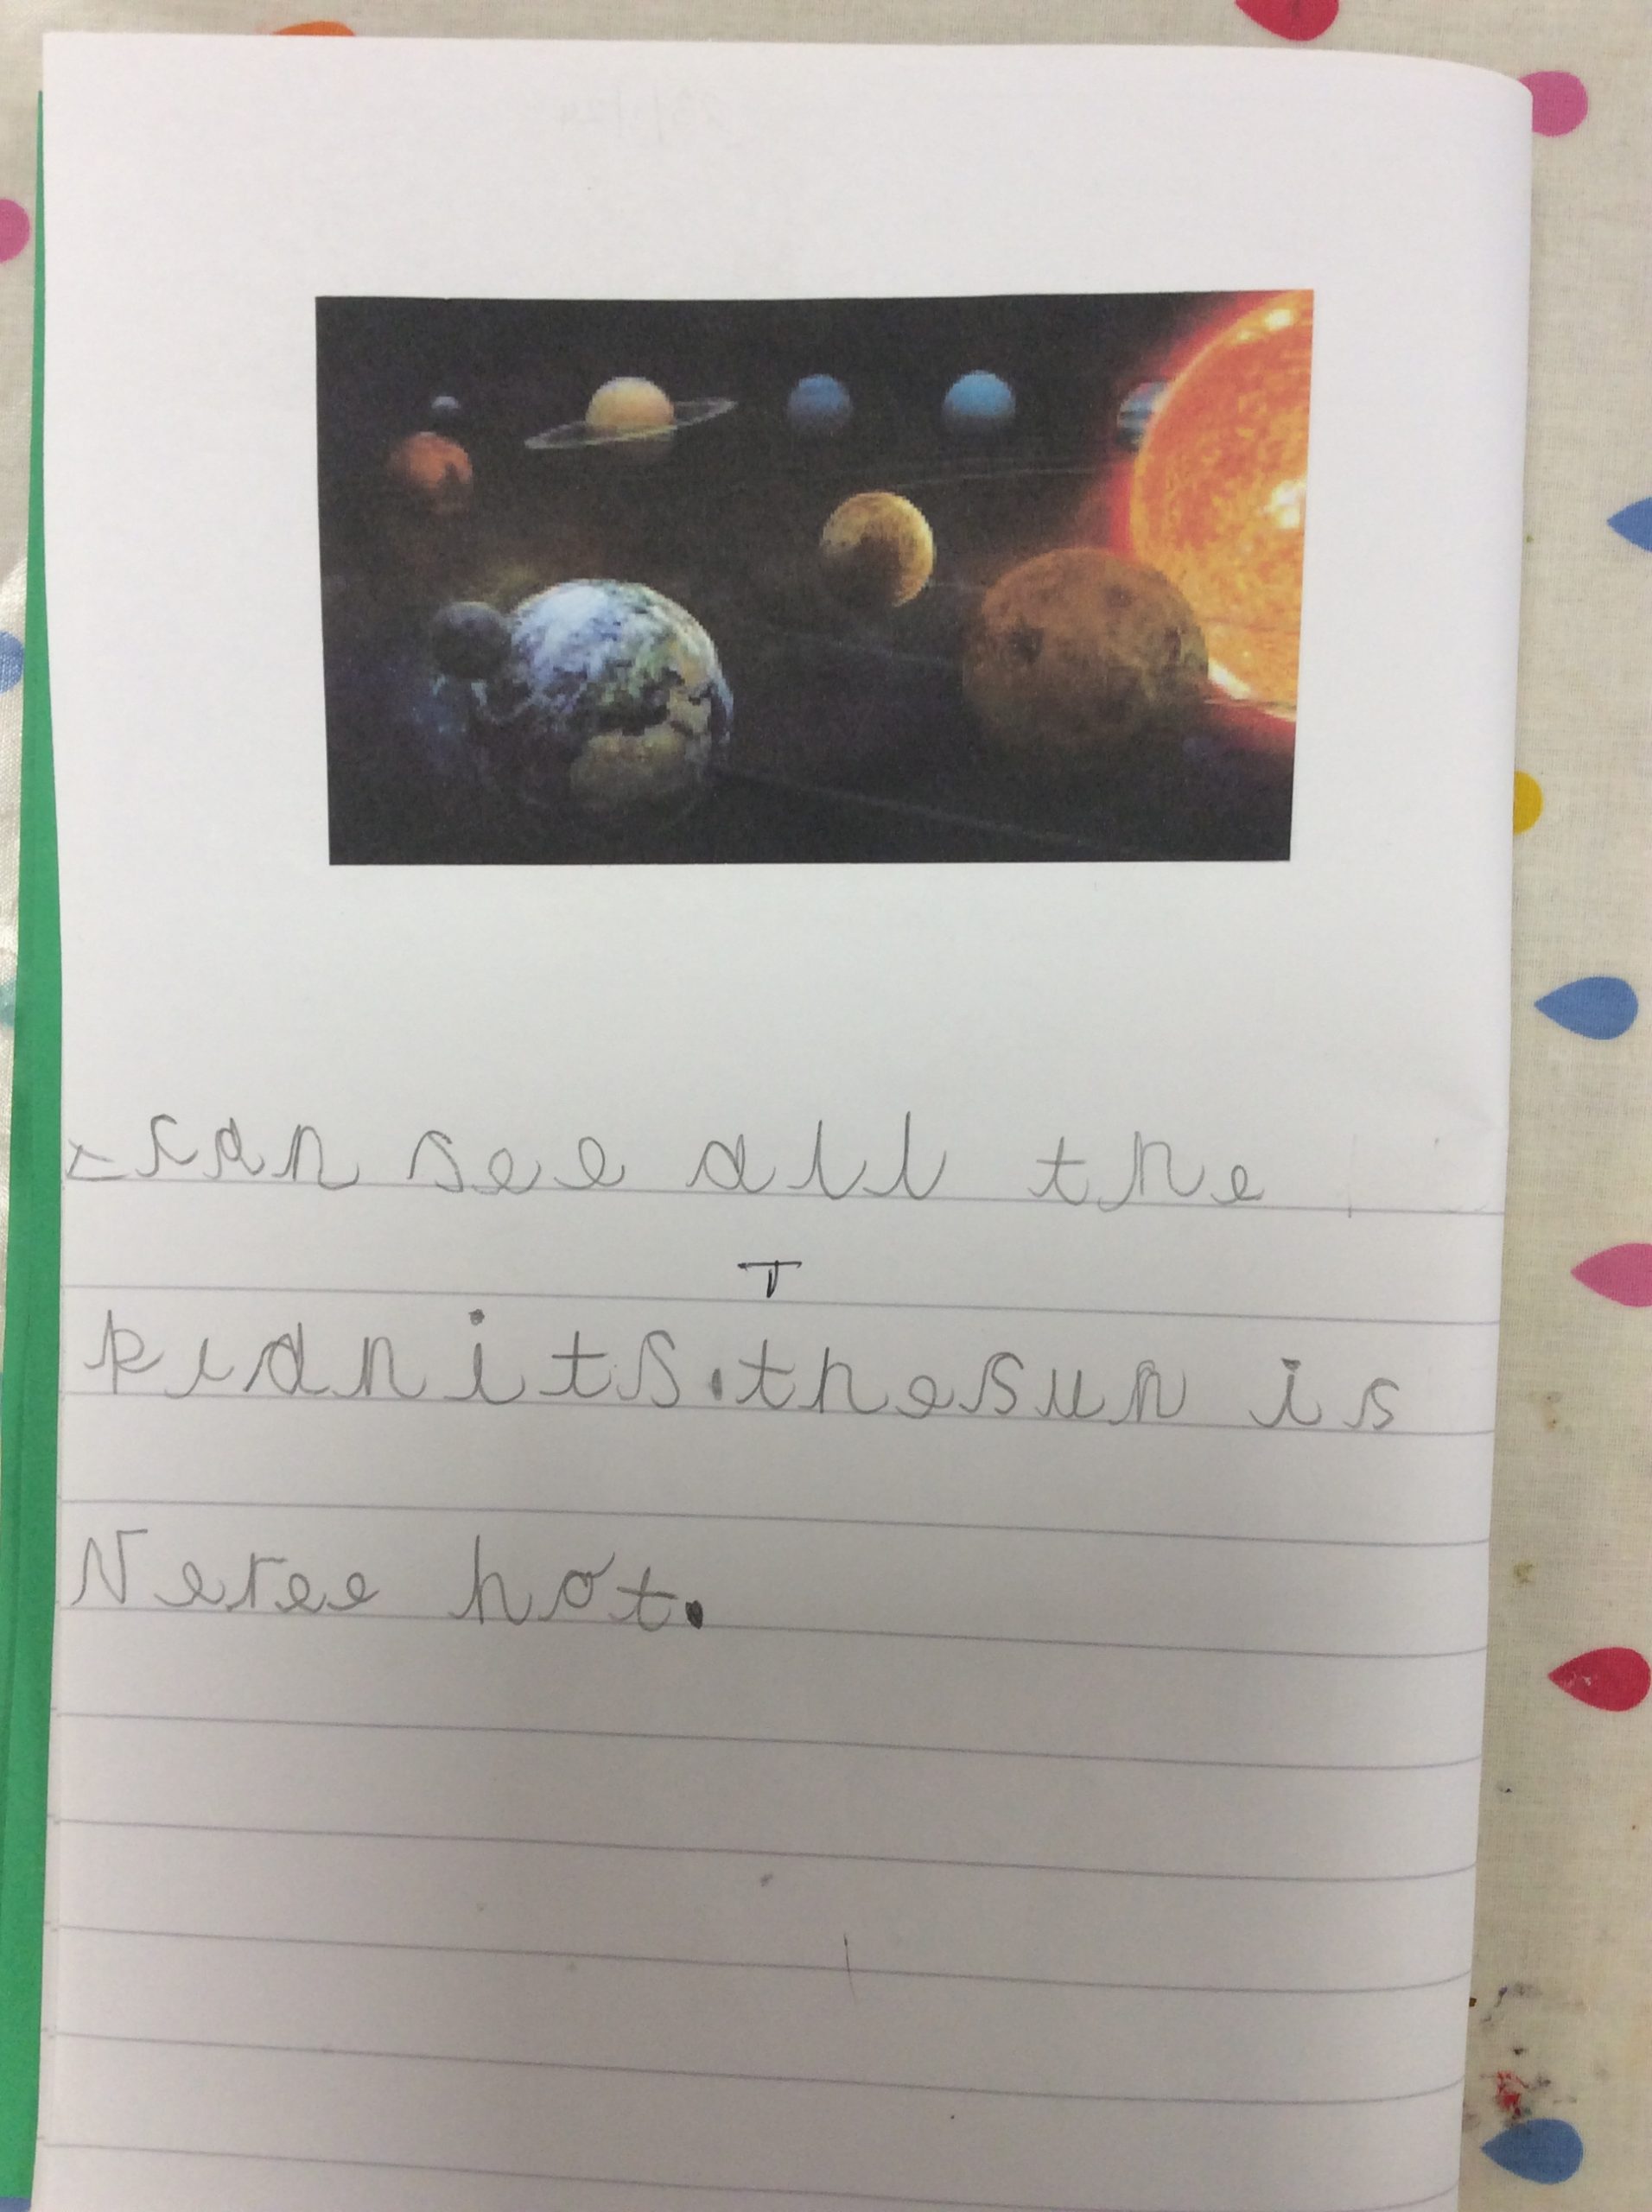 I can see all the
T
planits. the sun is
Veree hot.